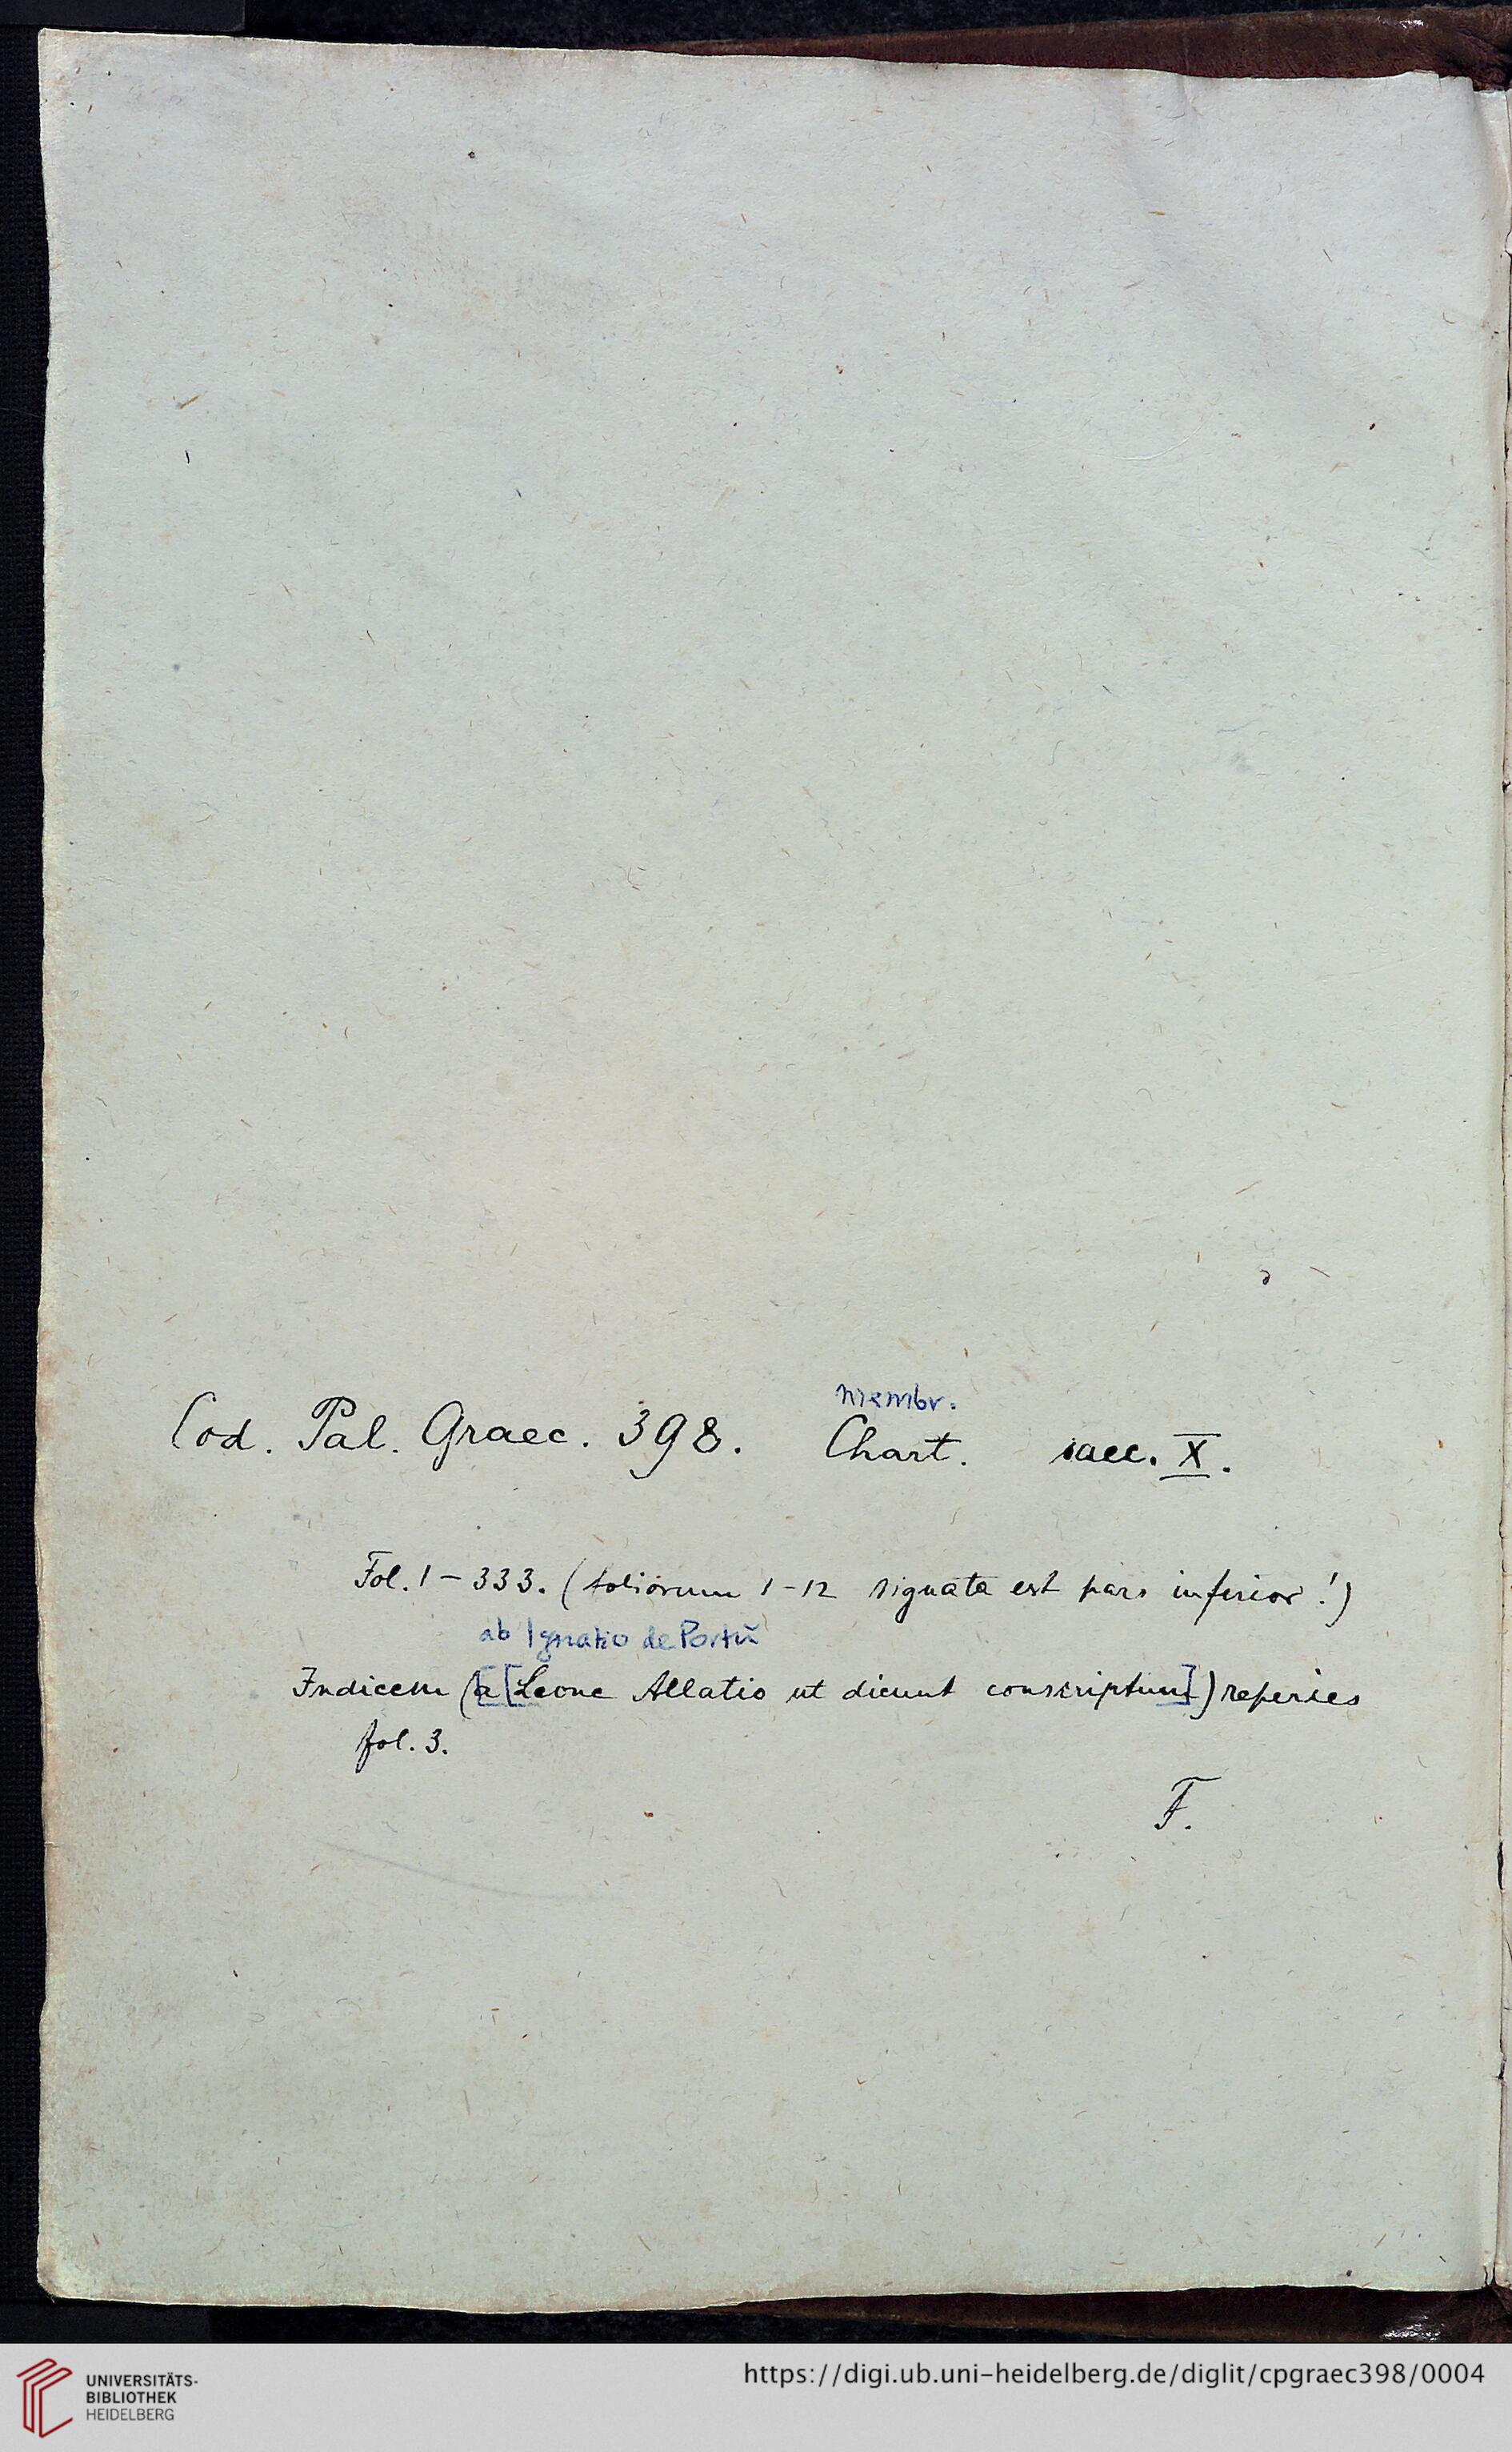 membr.
Cod. Pal. Graec. 398. Chart. saec. X.
Fol. 1 - 333. (foliorum 1 - 12 signata est pars inferior!)
ab Ignatio de Portu
Indicem (a [Leone Allatio ut dicunt conscriptum]) reperies
fol. 3.
F.
UNIVERSITÄTS-
BIBLIOTHEK
HEIDELBERG
https://digi.ub.uni-heidelberg.de/diglit/cpgraec398/0004